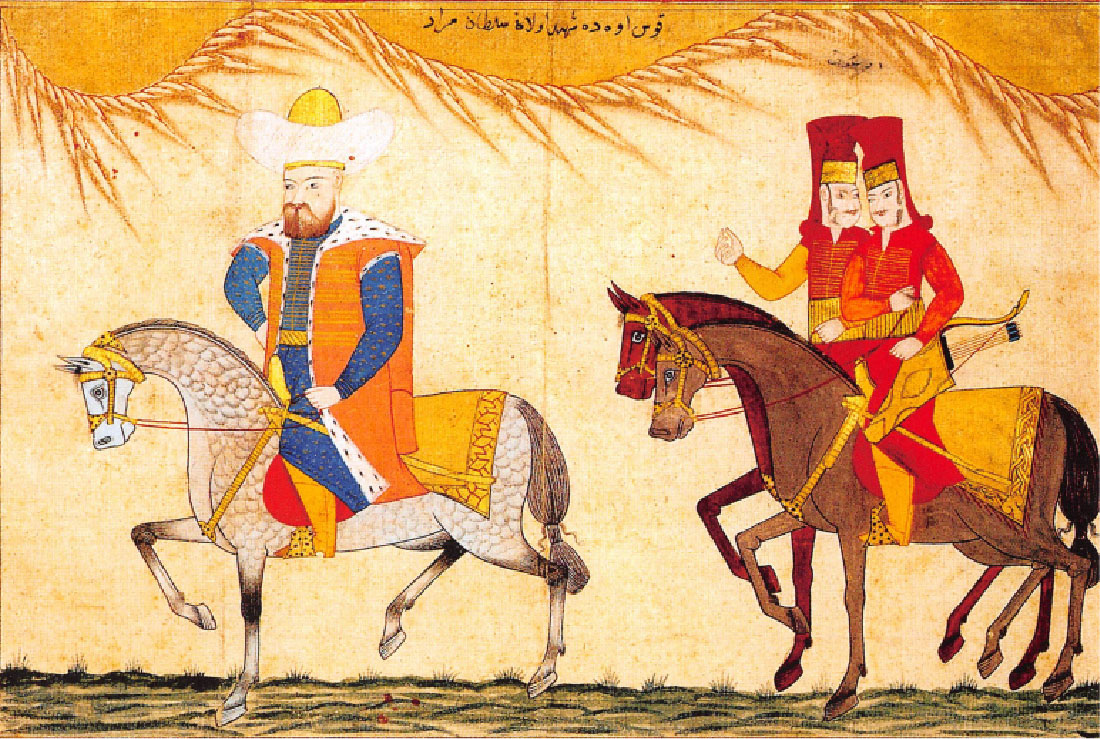 قوس اوه ده شهيد اولان سلطان مراد